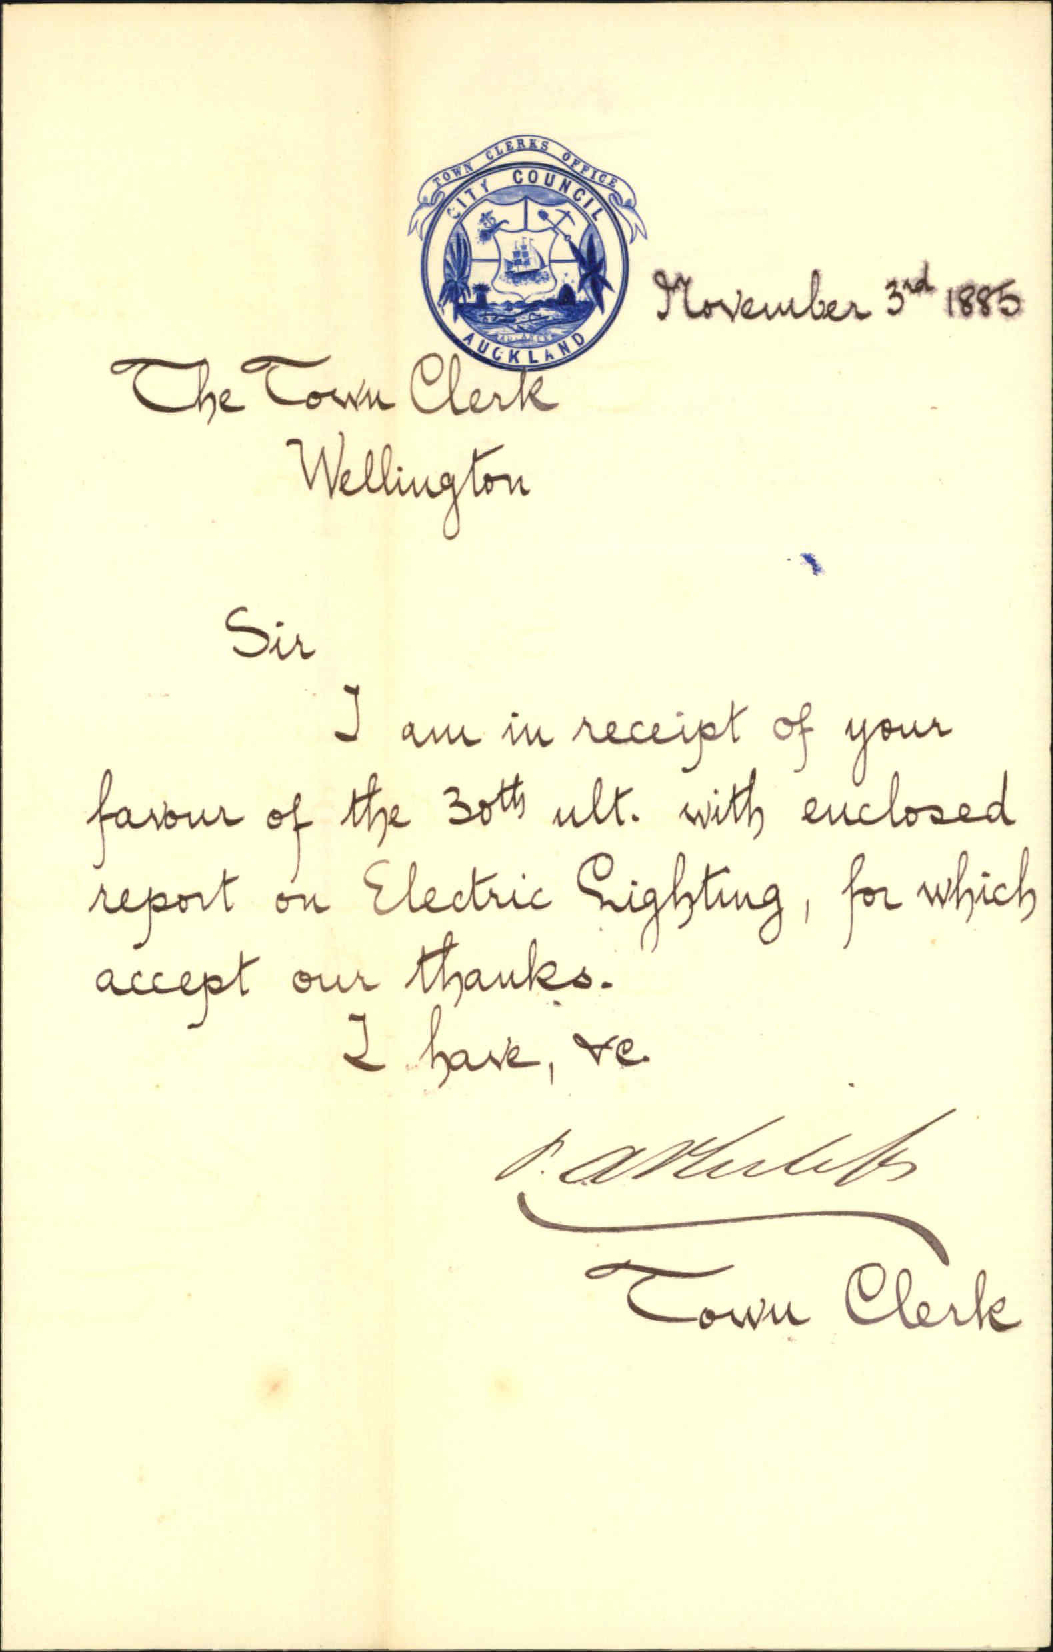 TOWN CLERKS OFFICE
CITY COUNCIL
AUCKLAND
November 3rd 1885
The Town Clerk
Wellington
Sir
I am in receipt of your
favour of the 30th ult. with enclosed
report on Electric Lighting, for which
accept our thanks.
I have, &c.
Town Clerk